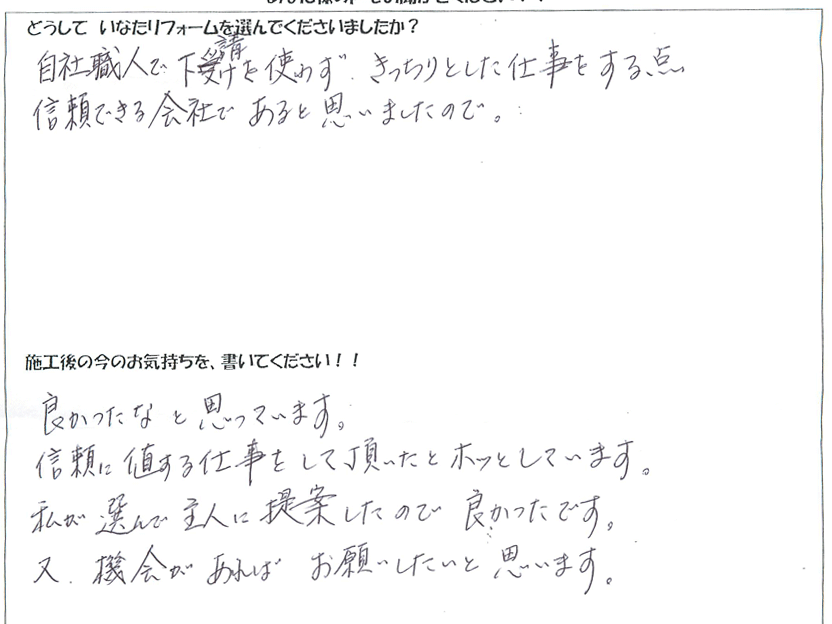 どうして いなたリフォームを選んでくださいましたか？
自社職人で下請けを使わず、きっちりとした仕事をする点
信頼できる会社であると思いましたので。
施工後の今のお気持ちを、書いてください！！
良かったなと思っています。
信頼に値する仕事をして頂いたとホッとしています。
私が選んで主人に提案したので良かったです。
又、機会があればお願いしたいと思います。